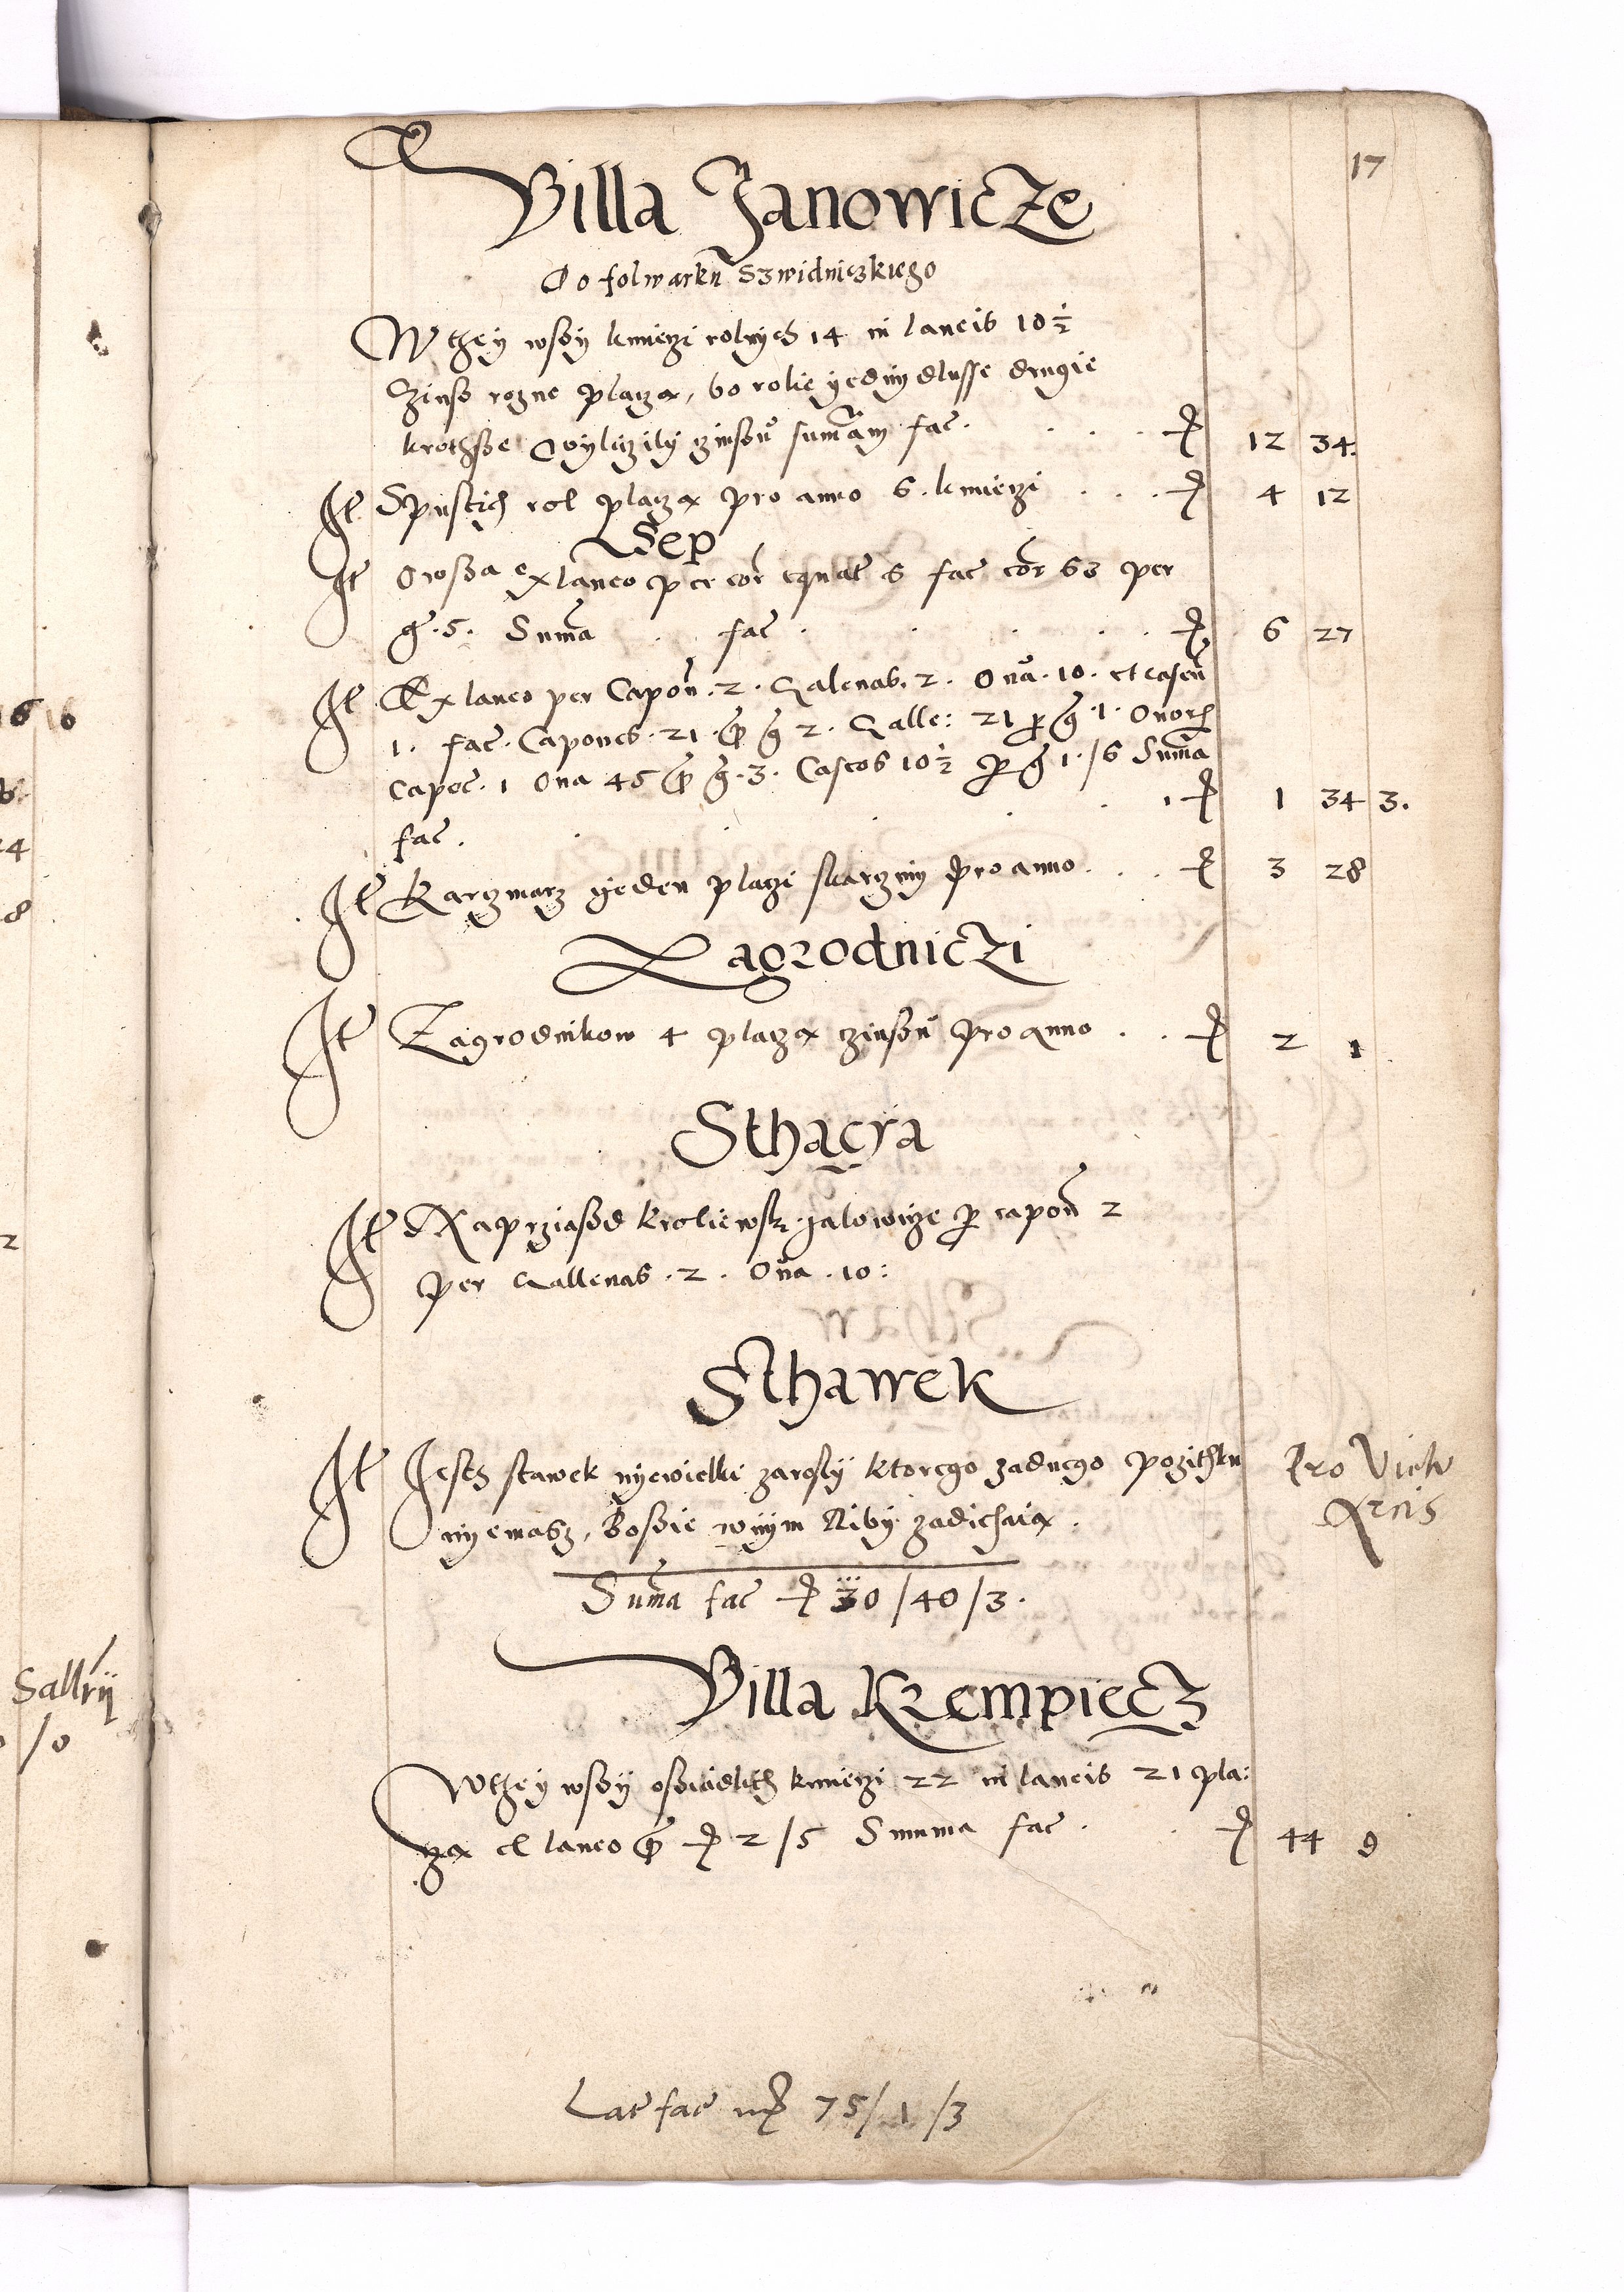 17
Villa Janowicze
Do folwarku Szwidniczkiego
W they wsży kmieczi rolnych 14 in laneis 10 ½
Czinsż rozne płaczą, bo rolie yedny dlusse drugie
krothsże Wyliczily czinsżu sumam fac. 12 34.
It Spustich rol placzą pro anno 6. kmieczi 4 12
Sep
It Owsża ex laneo per cor equat 6 fac cor 63 per
g. 5. Suma fac 6 27
It Ex laneo per Capon. 2. Galenas. 2. Oua. 10. et caseu
1. fac. Capones. 21. g 2. Galle: 21 g 1. Ouor
Capec. 1 Oua 45 g. 3. Caseos 10 ½ g 1./6 Suma
fac. 1 34 3.
It Karczmarz yeden placzi s karczmy pro anno 3 28
Zagrodniczi
It Zagrodnikow 4 placzą czinsżu pro anno 2 1
Sthacya
It Na prziasżd kroliewsk. jalowicze capon 2
per Gallenas. 2. Oua. 10:
Sthawek
It Jesth stawek nyewielki zarosly ktorego zadnego pozithku
nyemasz, Bosżie w nym Riby zadichaią.
Pro Vich
Suma fac 30/40/3.
Villa Krempiecz
W they wsży osżiadlich kmieczi 22 in laneis 21 pla:
czą ex laneo 2/5 Summa fac. 44 9
Lat fac 75/1/3
16 16
4
8
2
/0